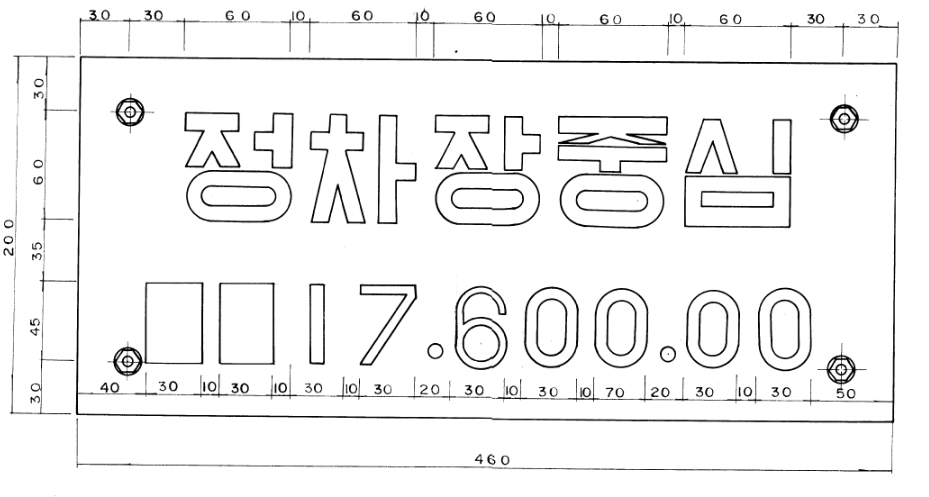 30 30 60 10 60 10 60 10 60 10 60 30 30
30
60
35
45
30
200
정차장중심
□□17.600.00
40 30 10 30 10 30 10 30 20 30 10 30 10 70 20 30 10 30 50
460